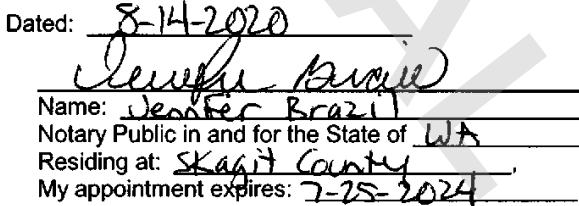 Dated: 8-14-2020
Jennifer Brazil
Name: Jennifer Brazil
Notary Public in and for the State of WA
Residing at: Skagit County,
My appointment expires: 7-25-2024